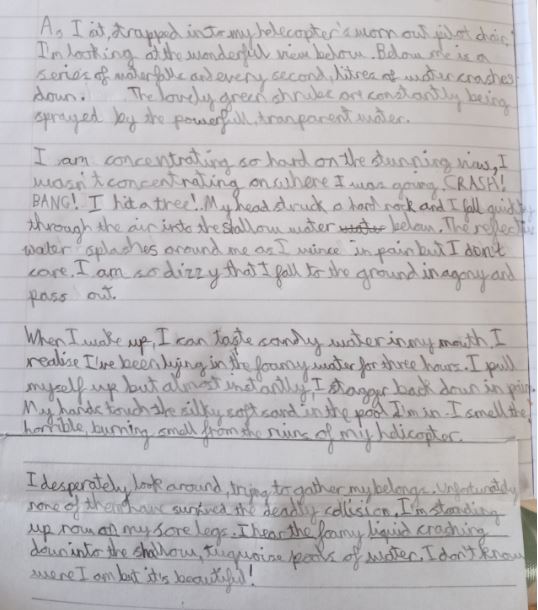 As I sit, strapped in to my helecopter's worn out pilot chair,
I'm looking at the wonderful view below. Below me is a
series of waterfalls and every second, litres of water crashes
down. The lovely green shrubs are constantly being
sprayed by the powerfull, tranparent water.
I am concentrating so hard on the stunning view, I
wasn't concentrating on where I was going. CRASH!
BANG! I hit a tree! My head struck a hard rock and I fall quickly
through the air into the shallow water below. The reflective
water splashes around me as I wince in pain but I don't
care. I am so dizzy that I fall to the ground in agony and
pass out.
When I wake up, I can taste sandy water in my mouth. I
realise I've been lying in the foamy water for three hours. I pull
myself up but almost instantly, I stagger back down in pain.
My hands touch the silky soft sand in the pool I'm in. I smell the
horrible, burning smell from the ruins of my helicopter.
I desperately look around, trying to gather my belongs. Unfortunately
none of them have survived the deadly collision. I'm standing
up now on my sore legs. I hear the foamy liquid crashing
down into the shallow, turquoise pools of water. I don't know
were I am but it's beautiful!